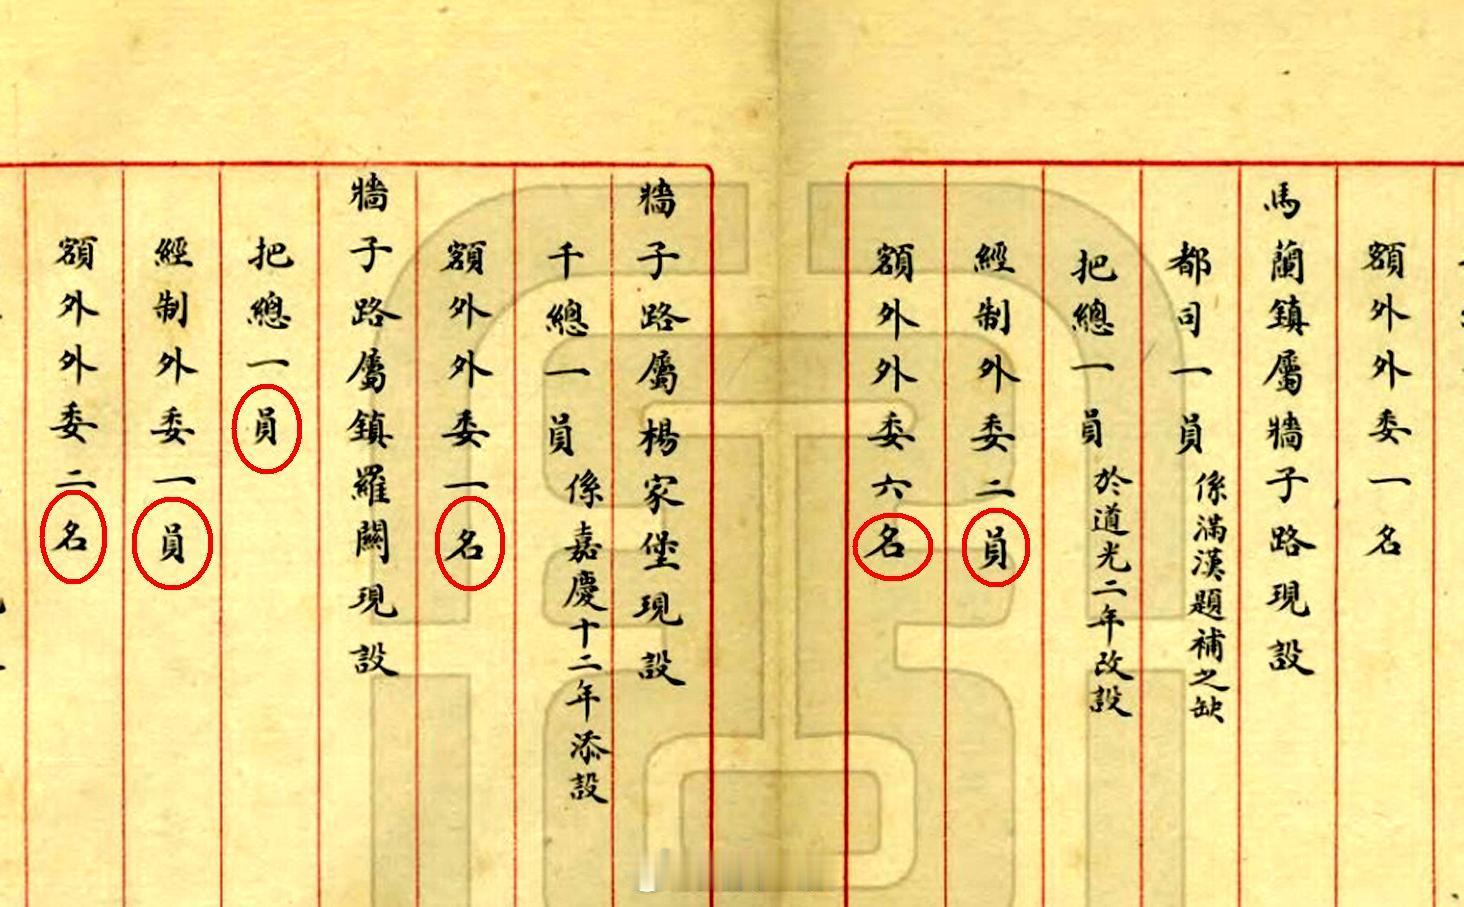 額外外委一名
馬蘭鎮屬牆子路現設
都司一員係滿漢題補之缺
把總一員於道光二年改設
經制外委二員
額外外委六名
牆子路屬楊家堡現設
千總一員係嘉慶十二年添設
額外外委一名
牆子路屬鎮羅關現設
把總一員
經制外委一員
額外外委二名